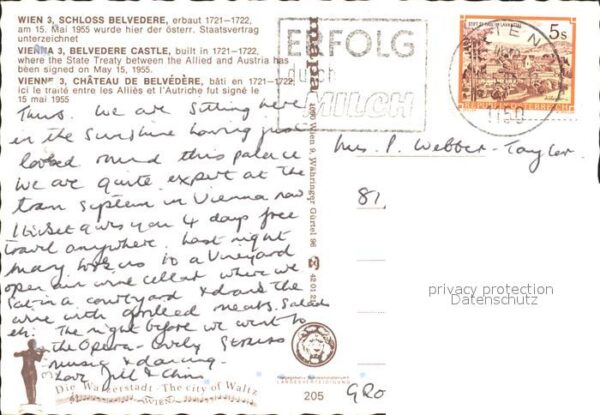 WIEN 3, SCHLOSS BELVEDERE, erbaut 1721—1722,
am 15. Mai 1955 wurde hier der österr. Staatsvertrag
unterzeichnet
VIENNA 3, BELVEDERE CASTLE, built in 1721—1722,
where the State Treaty between the Allied and Austria has
been signed on May 15, 1955.
VIENNE 3, CHÂTEAU DE BELVÉDÈRE, bâti en 1721—1722,
ici le traité entre les Alliés et l'Autriche fut signé le
15 mai 1955
Thurs. We are sitting here
in the sunshine having just
looked round this palace
We are quite expert at the
tram system in Vienna now
1 ticket gives you 4 days free
travel anywhere. Last night
Mary took us to a Vineyard
open air wine cellar where we
sat in a courtyard & drank the
wine with grilled meats. Salads
etc. The night before we went to
the Opera - lovely Strauss
music & dancing.
Love Jill & Chris
Die Walzerstadt - The city of Waltz
WIEN
mapa
1090 Wien 9, Währinger Gürtel 96
42 01 2
205
ERFOLG
durch
MILCH
WIEN
1150
STIFT ST. PAUL IM LAVANTTAL
5S
REPUBLIK ÖSTERREICH
Mrs. P. Webber-Taylor
81,
privacy protection
Datenschutz